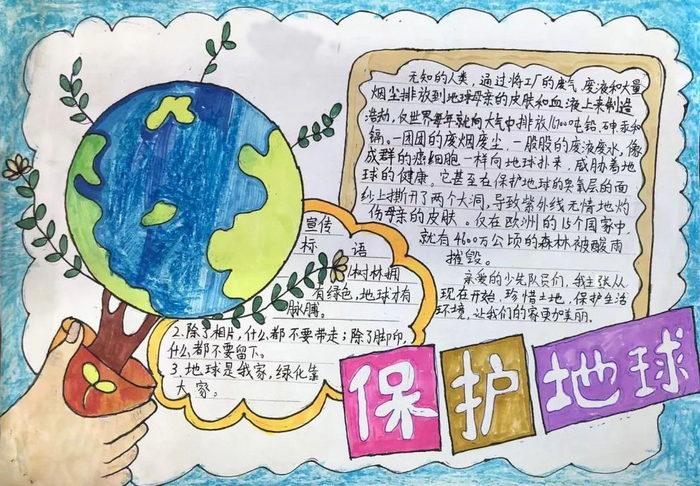 无知的人类，通过将工厂的废气，废液和大量
烟尘排放到地球母亲的皮肤和血液上来制造
浩劫，仅世界每年就向大气中排放 吨铅，砷汞和
镉。一团团的废烟废尘，一股股的废液废水，像
成群的癌细胞一样向地球扑来，威胁着地
球的健康。它甚至在保护地球的臭氧层的面
纱上撕开了两个大洞，导致紫外线无情地灼
伤母亲的皮肤。仅在欧洲的15个国家中，
就有4600万公顷的森林被酸雨
摧毁。
亲爱的少先队员们，我主张从
现在开始，珍惜土地，保护生活
环境，让我们的 更加美丽。
宣传
标 语
树林
有绿色，地球才有
脉膊。
2.除了相片，什么都不要带走；除了脚印，
什么都不要留下。
3.地球是我家，绿化靠
大家。
保护地球